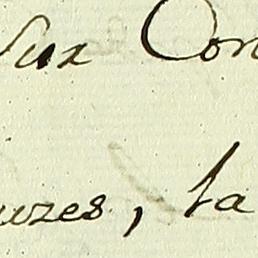 Sux Con
uzes, la